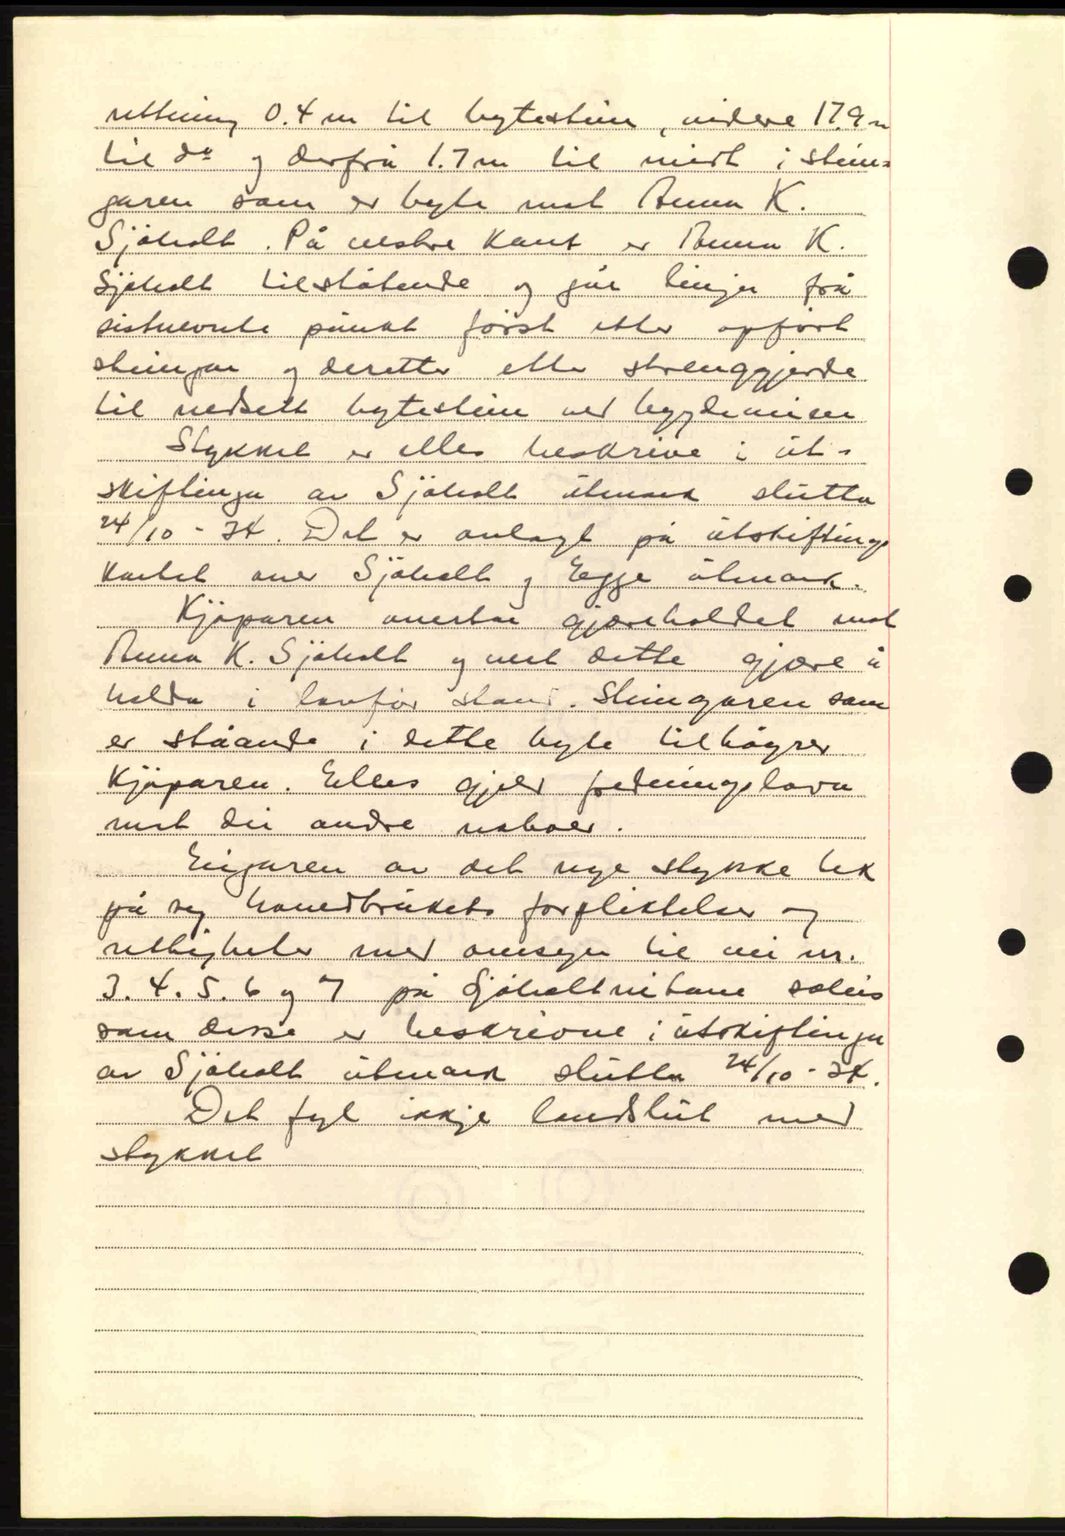 rettning 0.4 m til bytestein, vidare 17.9 m
til do og derfrå 1.7 m til midt i stein-
garen som er byte mot Anna K.
Sjøholt. På vestre kant er Anna K.
Sjøholt tilstøtende og går linja frå
sistnevnte punkt først etter opført
steingar og deretter etter strenggjerde
til nedsett bytestein ved bygdeveien
Stykket er elles beskrive i ut-
skiftinga av Sjøholt utmark slutta
24/10 - 34. Det er avlagt på utskiftings
kartet over Sjøholt og Egge utmark.
Kjøparen overtar gjereholdet mot
Anna K. Sjøholt og vert dette gjære å
holda i lovfør stand. Steingaren som
er ståande i dette byte tilhøyrer
Kjøparen. Elles gjeld fredningslova
mot dei andre naboer.
Eigaren av det nye stykke tek
på seg hovedbrukets forpliktelser og
rettigheter med omsyn til vei nr.
3. 4. 5. 6 og 7 på Sjøholtvitane soleis
som disse er beskrivne i utskiftinga
av Sjøholt utmark slutta 24/10 - 34.
Det fyl ikkje landslut med
stykket